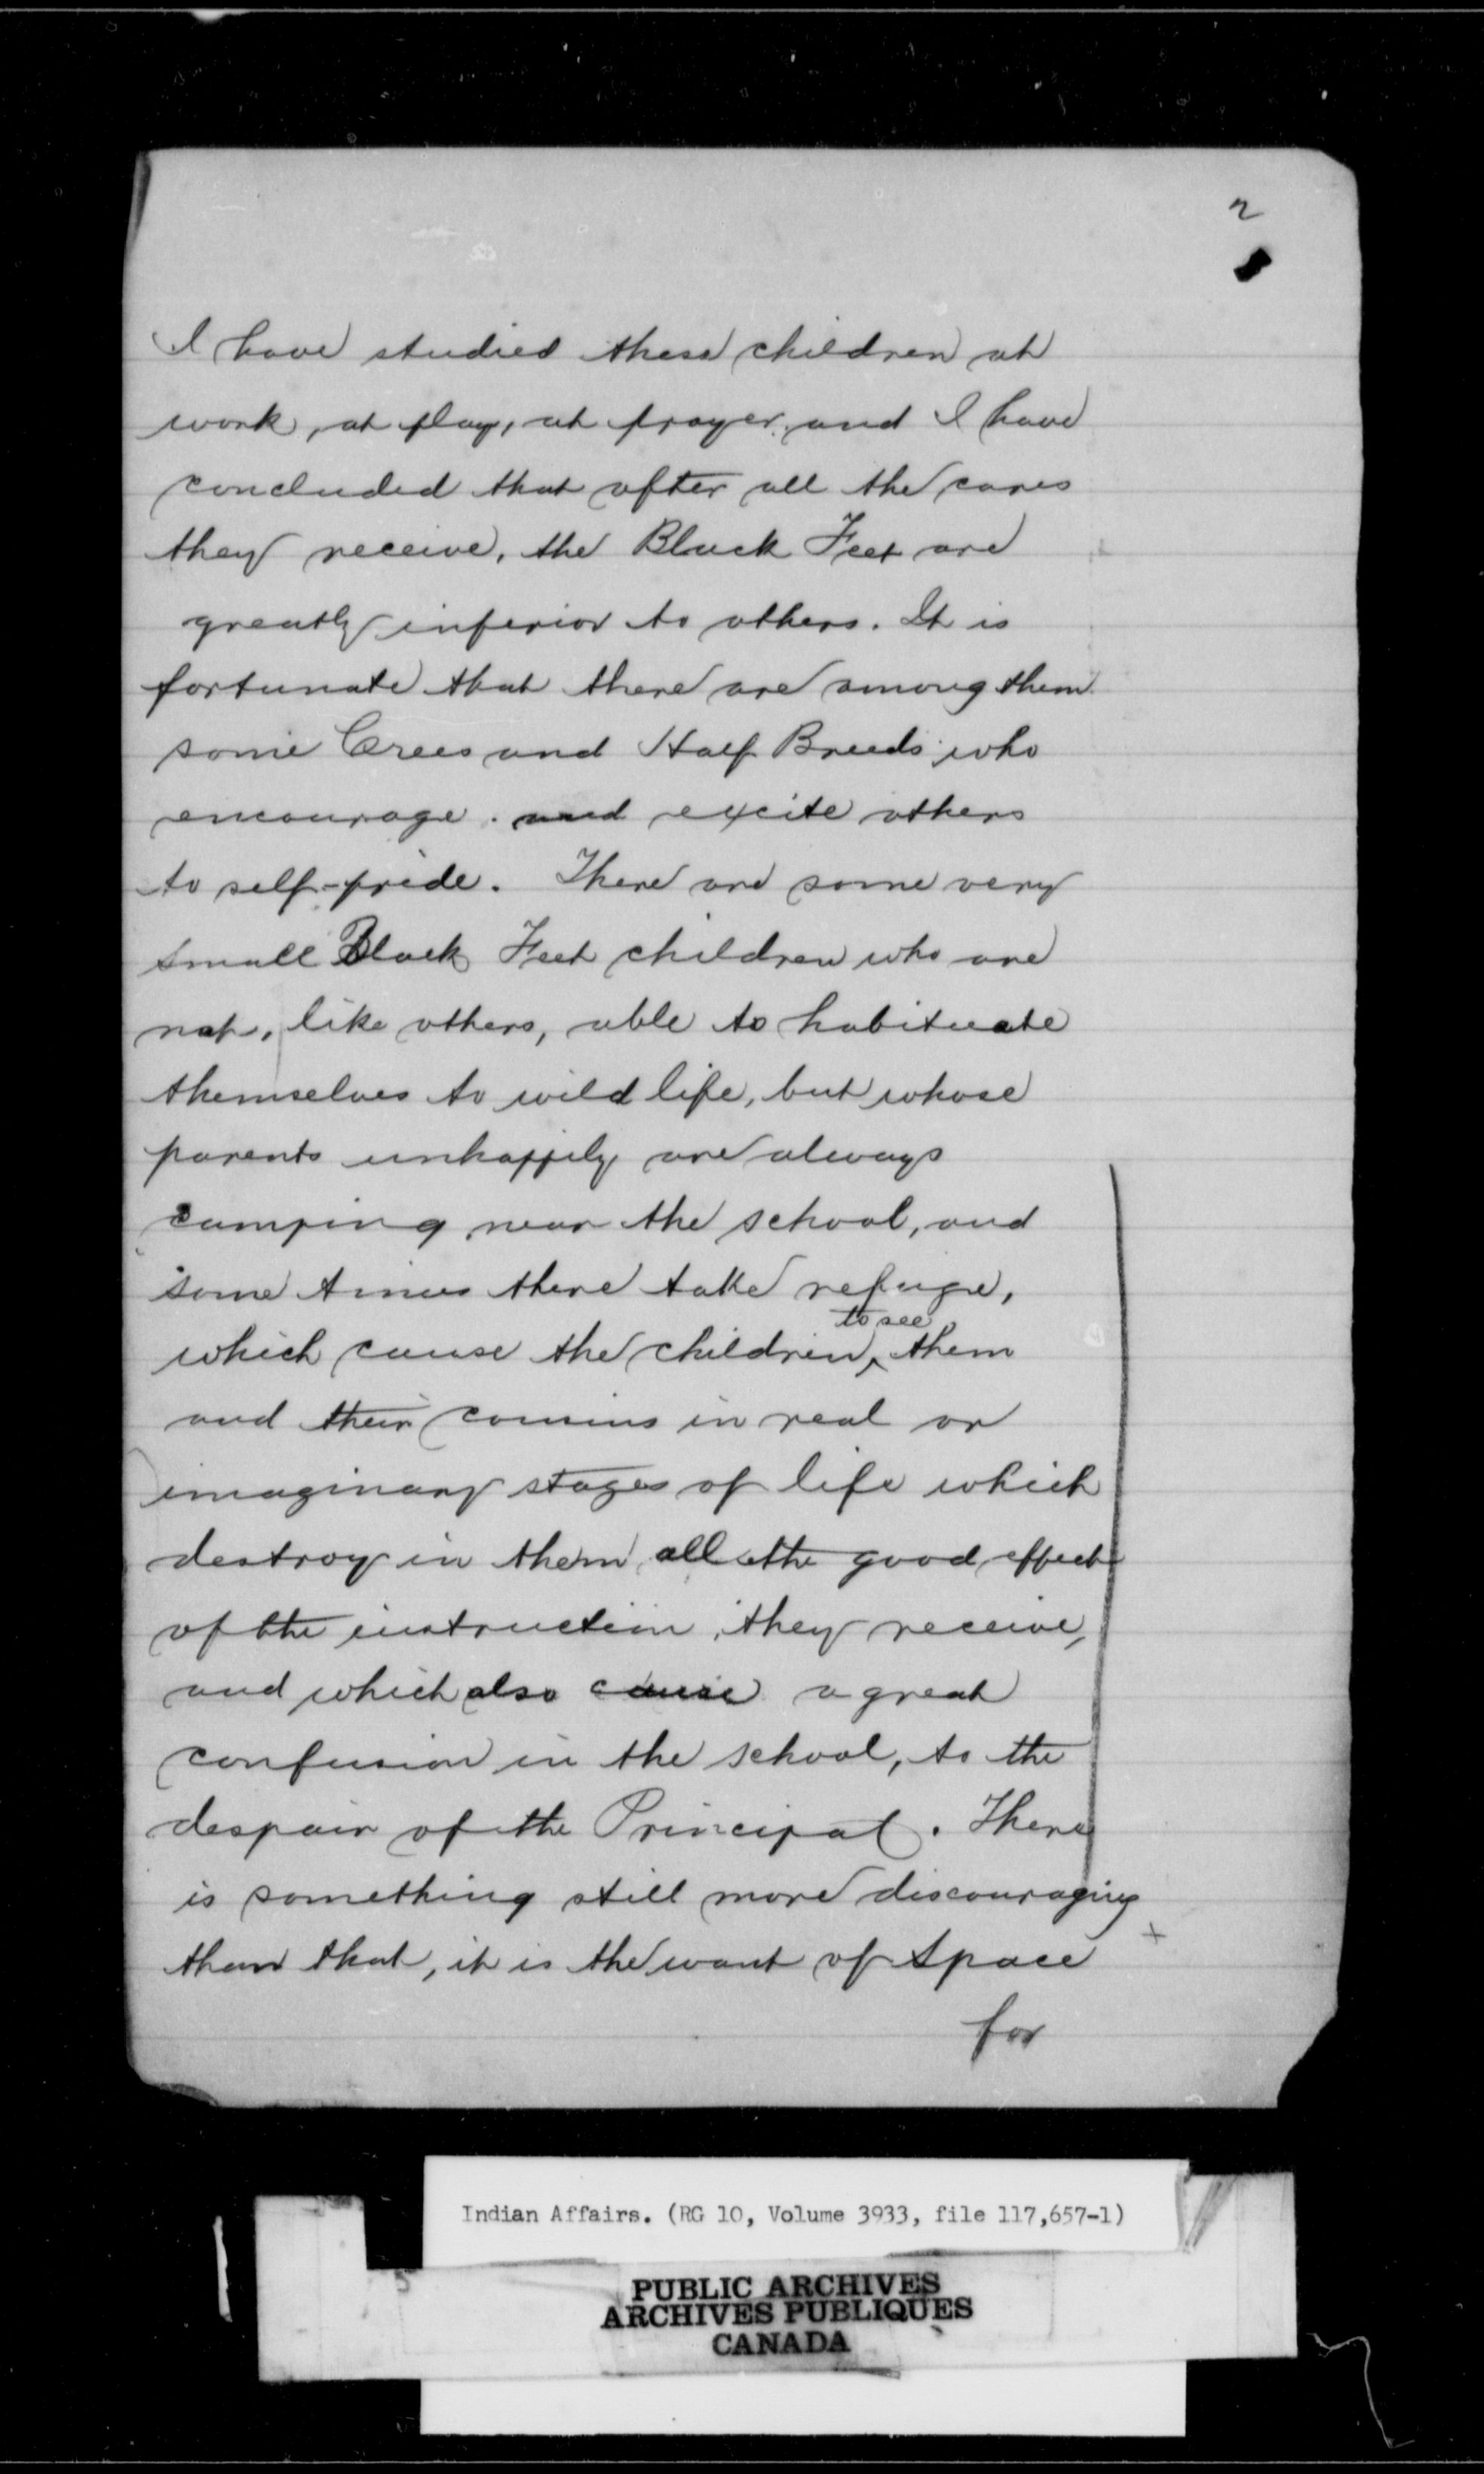 2
I have studied these children at
work, at play, at prayer, and I have
concluded that after all the cares
they receive, the Black Feet are
greatly inferior to others. It is
fortunate that there are among them
some Crees and Half Breeds who
encourage and excite others
to self-pride. There are some very
small Black Feet children who are
not, like others, able to habituate
themselves to wild life, but whose
parents unhappily are always
camping near the school, and
some times there take refuge,
to see
which cause the children, ‸ them
and their cousins in real or
imaginary stages of life which
destroy in them all the good effect
of the instruction they receive,
and which also cause a great
confusion in the school, to the
despair of the Principal. There
is something still more discouraging
than that, it is the want of space
+
for
Indian Affairs. (RG 10, Volume 3933, file 117,657-1)
PUBLIC ARCHIVES
ARCHIVES PUBLIQUES
CANADA